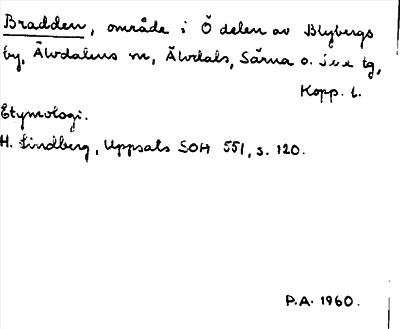 Bradden, område i Ö delen av Blybergs
by, Älvdalens sn, Älvdals, Särna o. Idre tg,
Kopp. l.
Etymologi.
H. Lindberg, Uppsats SOH 551, s. 120.
P.A. 1960.